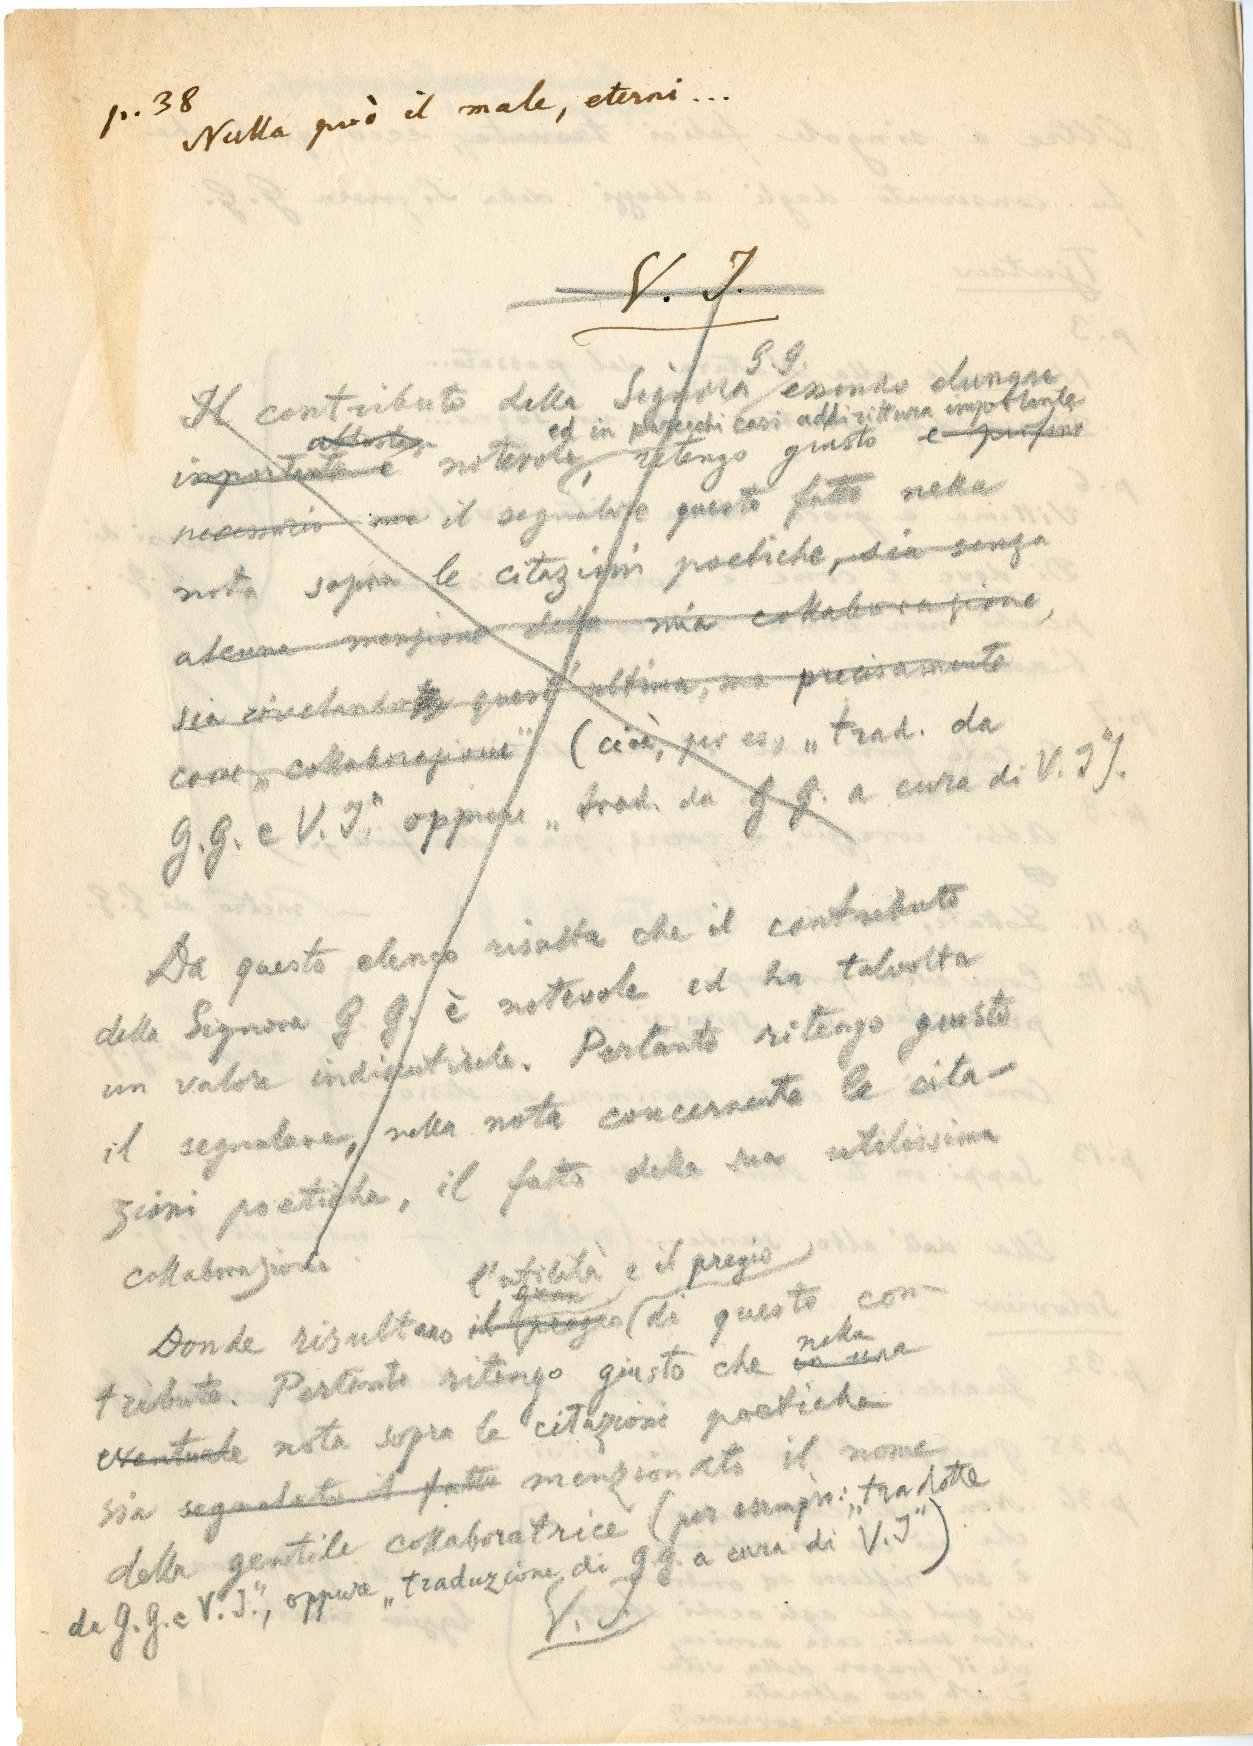 p. 38
Nulla può il male, eterni...
V. I.
G. G.
Il contributo della Signora essendo dunque
ed in parecchi casi addirittura importante
importante e notevole, ritengo giusto e perfino
necessario il segnalare questo fatto nella
nota sopra le citazioni poetiche, sia senza
alcuna menzione della mia collaborazione,
sia rivelando quest'ultima, ma precisamente
come „collaborazione" (cioè, per es., „trad. da
G. G. e V. I.", oppure „trad. da G. G. a cura di V. I").
Da questo elenco risulta che il contributo
della Signora G. G. è notevole ed ha talvolta
un valore indiscutibile. Pertanto ritengo giusto
il segnalare, nella nota concernente le cita-
zioni poetiche, il fatto della sua utilissima
collaborazione
l'utilità e il pregio
Donde risultano il pregio di questo con-
nella
tributo. Pertanto ritengo giusto che in una
eventuale nota sopra le citazioni poetiche
sia segnalato il fatto menzionato il nome
della gentile collaboratrice (per esempio: „tradotte
da G. G. e V. I.", oppure „traduzione di G. G. a cura di V. I")
V. I.